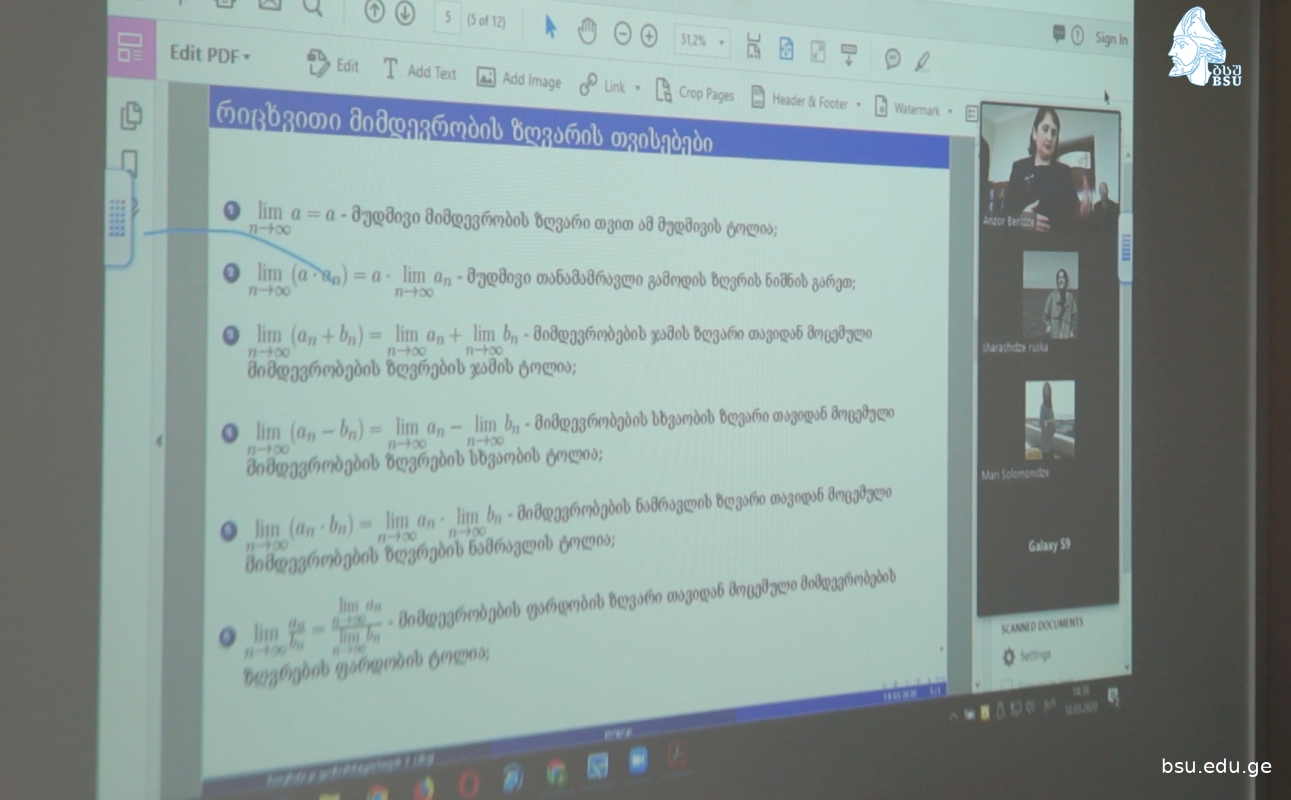 5 (5 of 12) 51,2% Sign In
ბსუ
BSU
Edit PDF Edit Add Text Add Image Link Crop Pages Header & Footer Watermark
რიცხვითი მიმდევრობის ზღვარის თვისებები
1 lim n→∞ a = a - მუდმივი მიმდევრობის ზღვარი თვით ამ მუდმივის ტოლია;
2 lim n→∞ (a · aₙ) = a · lim n→∞ aₙ - მუდმივი თანამამრავლი გამოდის ზღვრის ნიშნის გარეთ;
3 lim n→∞ (aₙ + bₙ) = lim n→∞ aₙ + lim n→∞ bₙ - მიმდევრობების ჯამის ზღვარი თავიდან მოცემული
მიმდევრობების ზღვრების ჯამის ტოლია;
4 lim n→∞ (aₙ − bₙ) = lim n→∞ aₙ − lim n→∞ bₙ - მიმდევრობების სხვაობის ზღვარი თავიდან მოცემული
მიმდევრობების ზღვრების სხვაობის ტოლია;
5 lim n→∞ (aₙ · bₙ) = lim n→∞ aₙ · lim n→∞ bₙ - მიმდევრობების ნამრავლის ზღვარი თავიდან მოცემული
მიმდევრობების ზღვრების ნამრავლის ტოლია;
6 lim n→∞ aₙ/bₙ = lim n→∞ aₙ / lim n→∞ bₙ - მიმდევრობების ფარდობის ზღვარი თავიდან მოცემული მიმდევრობების
ზღვრების ფარდობის ტოლია;
Anzor Beridze
sharashidze ruska
Mari Solomonidze
Galaxy S9
SCANNED DOCUMENTS
Settings
bsu.edu.ge